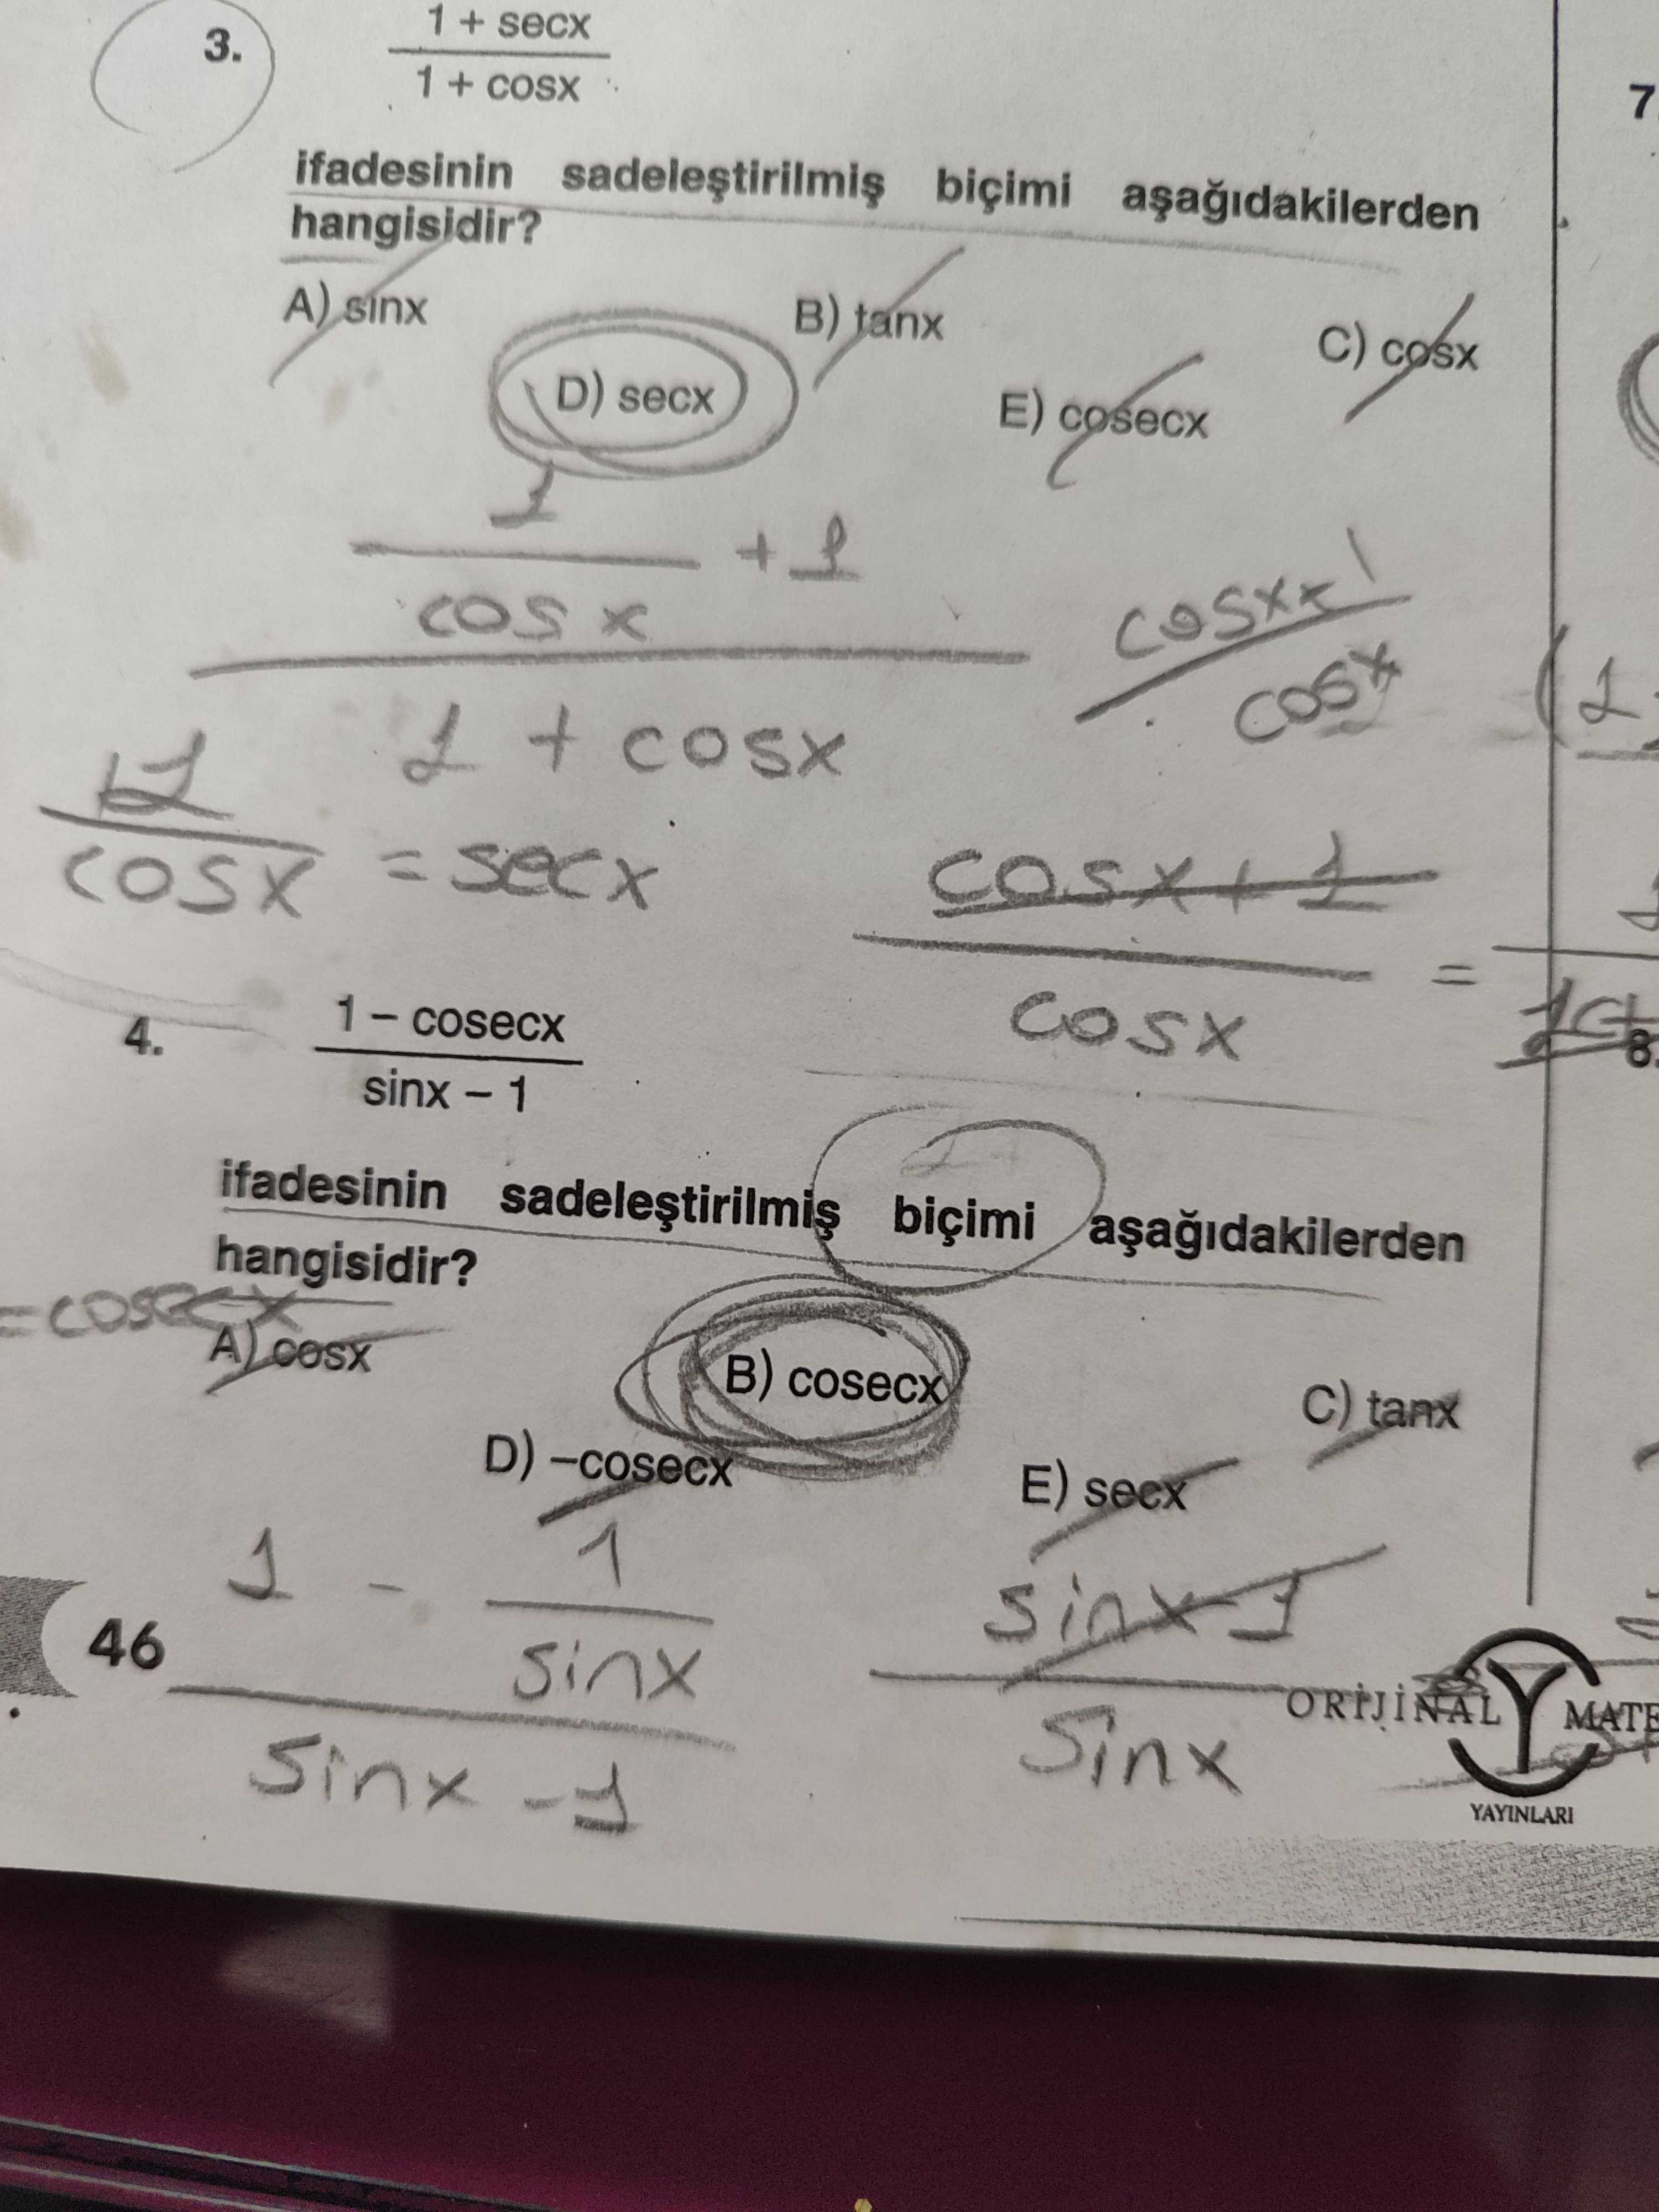 3.
1 + secx
1 + cosx
ifadesinin sadeleştirilmiş biçimi aşağıdakilerden
hangisidir?
A) sinx
B) tanx
C) cosx
D) secx
E) cosecx
1
cosx
+ 1
1 + cosx
cosx
1
cosx
= secx
cosx + 1
cosx
=
4.
1 – cosecx
sinx – 1
ifadesinin sadeleştirilmiş biçimi aşağıdakilerden
hangisidir?
= cosecx
A) cosx
B) cosecx
C) tanx
D) –cosecx
E) secx
1 - 1
sinx
sinx - 1
sinx - 1
sinx
46
ORİJİNAL
YAYINLARI
7
8.